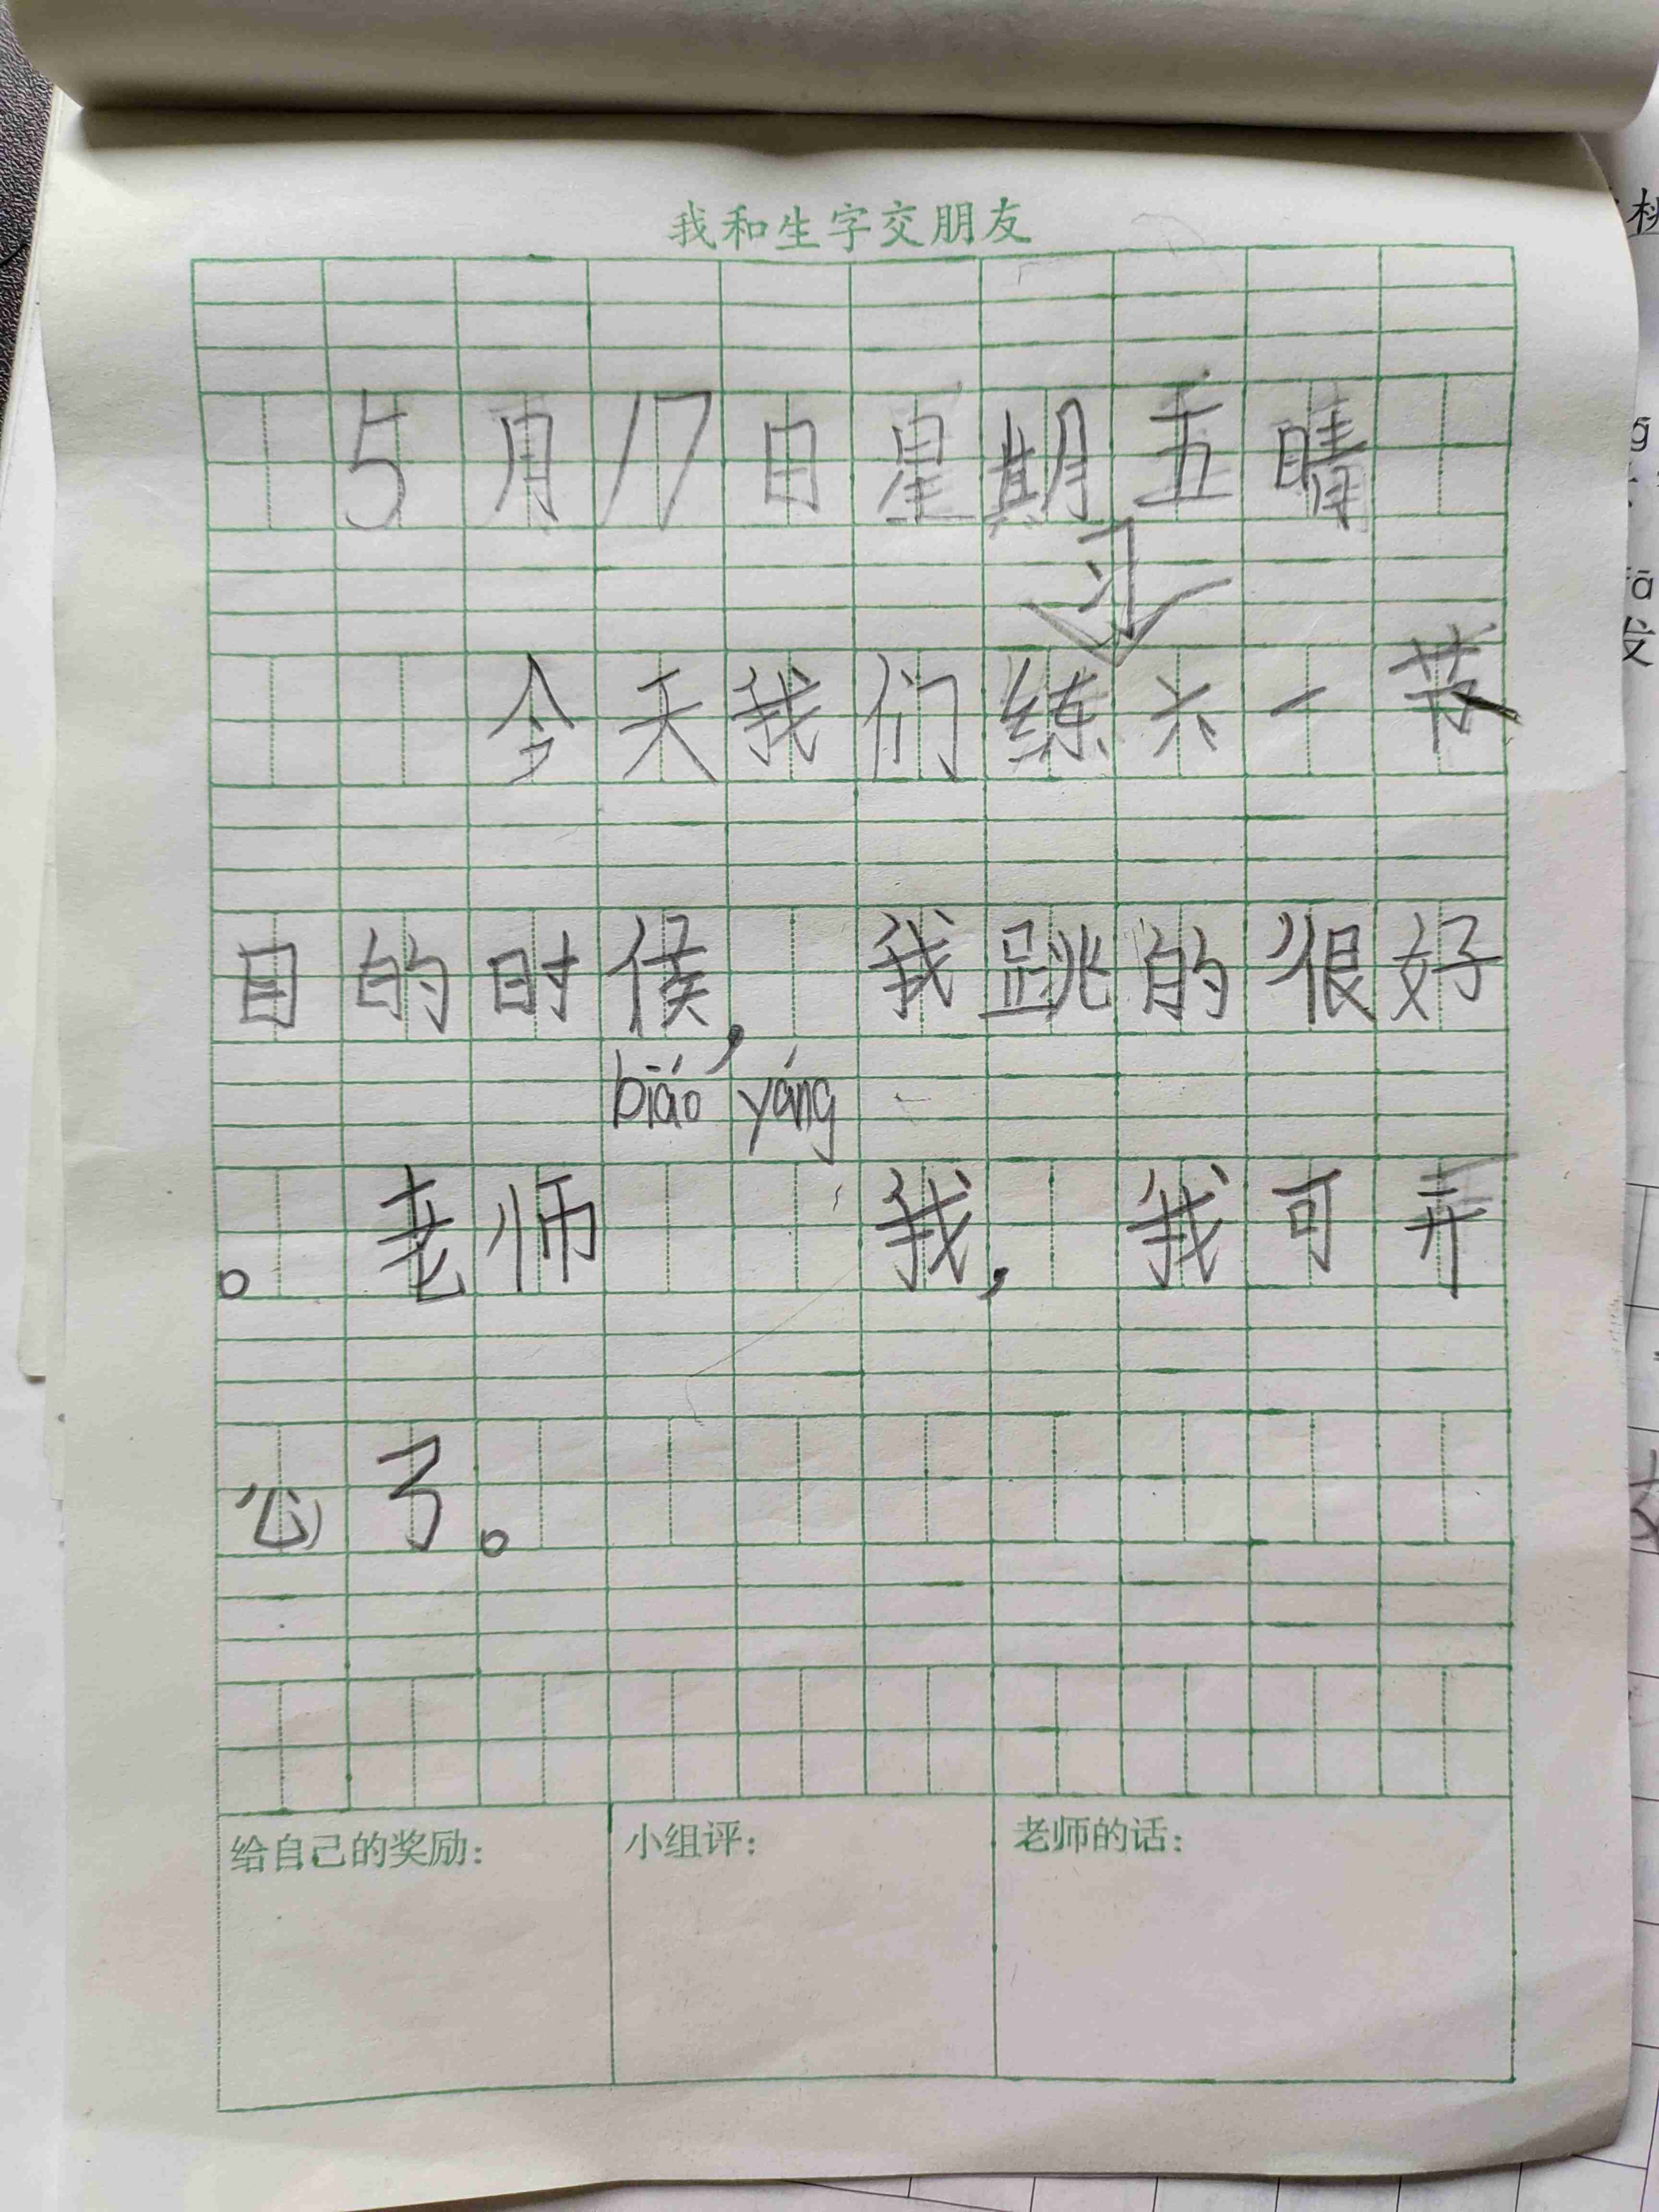 我和生字交朋友
5月17日星期五晴
习
今天我们练六一节
目的时侯,我跳的很好
biǎo yáng
。老师 我,我可弄
心了。
给自己的奖励:
小组评:
老师的话: